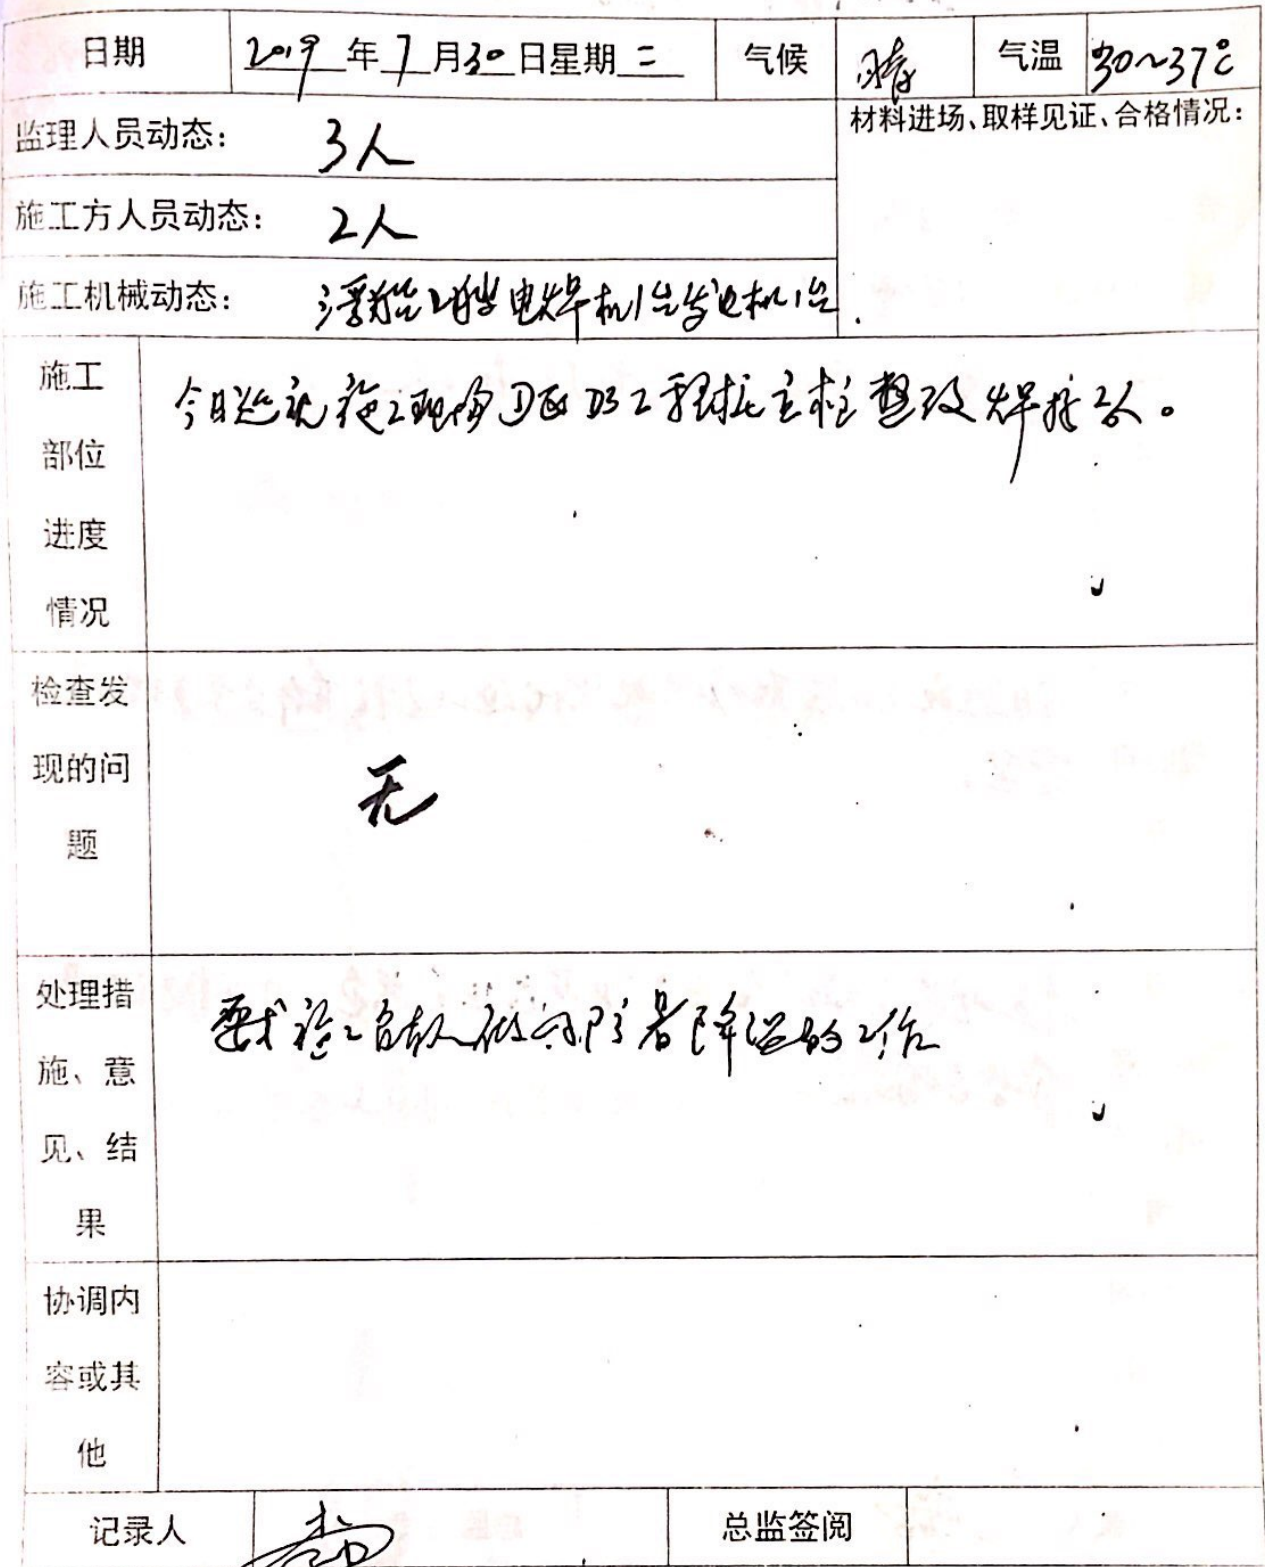 日期 2019年7月30日星期二 气候 晴 气温 30~37℃
监理人员动态: 3人 材料进场、取样见证、合格情况:
施工方人员动态: 2人
施工机械动态: 浮船2艘电焊机1台发电机1台
施工 今日巡视施工现场 D3工程桩立柱整改焊接2人。
部位
进度
情况
检查发
现的问 无
题
处理措 要求施工负责人做好防暑降温的工作
施、意
见、结
果
协调内
容或其
他
记录人 总监签阅